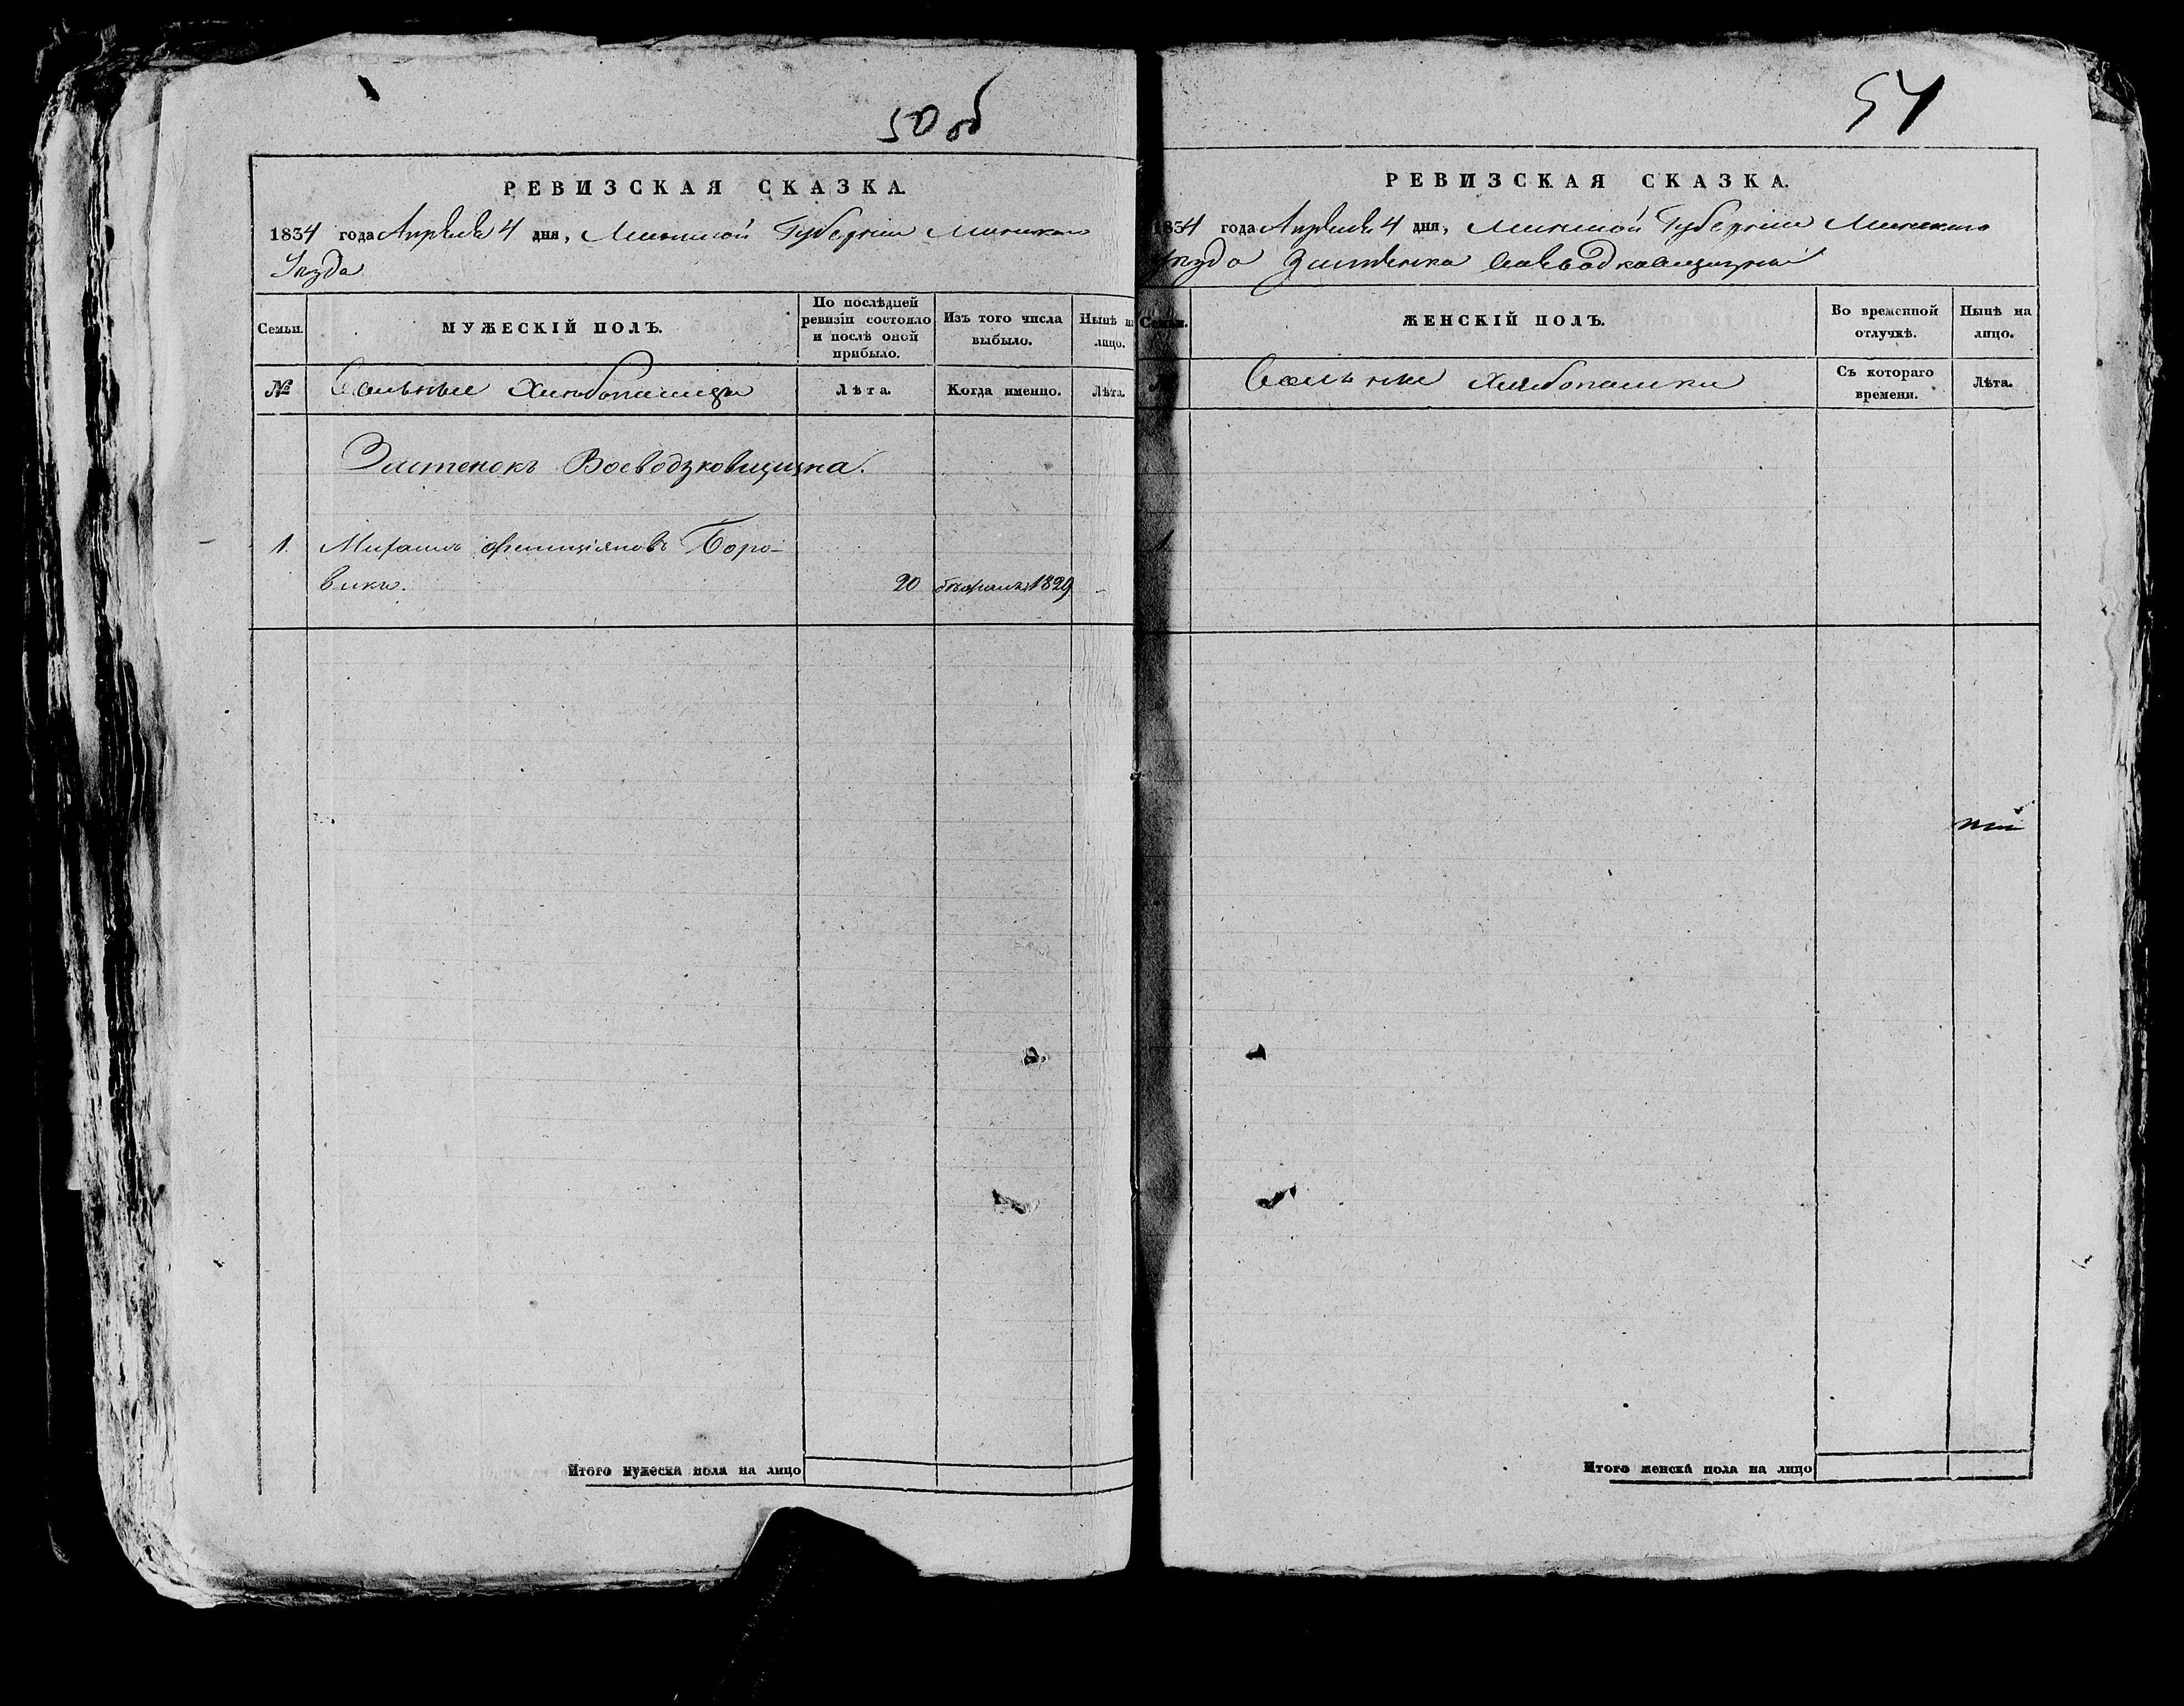 50 об
РЕВИЗСКАЯ СКАЗКА.
1834 года Апрѣля 4 дня, Минской Губерніи Минскаго
Уѣзда
Семьи.
МУЖЕСКІЙ ПОЛЪ.
По послѣдней ревизіи состояло и послѣ оной прибыло.
Изъ того числа выбыло.
Нынѣ на лицо.
№
Вольные Хлебопашцы
Лѣта.
Когда именно.
Лѣта.
Застенокъ Воеводзковщизна.
1. Михаилъ Фелиціяновъ Боро-
викъ. 20 1829
Итого мужеска пола на лицо
54
РЕВИЗСКАЯ СКАЗКА.
1834 года Апрѣля 4 дня, Минской Губерніи Минскаго
Уѣзда Застѣнка
Семьи.
ЖЕНСКІЙ ПОЛЪ.
Во временной отлучкѣ.
Нынѣ на лицо.
№
Вольные Хлебопашки
Съ котораго времени.
Лѣта.
1
Итого женска пола на лицо